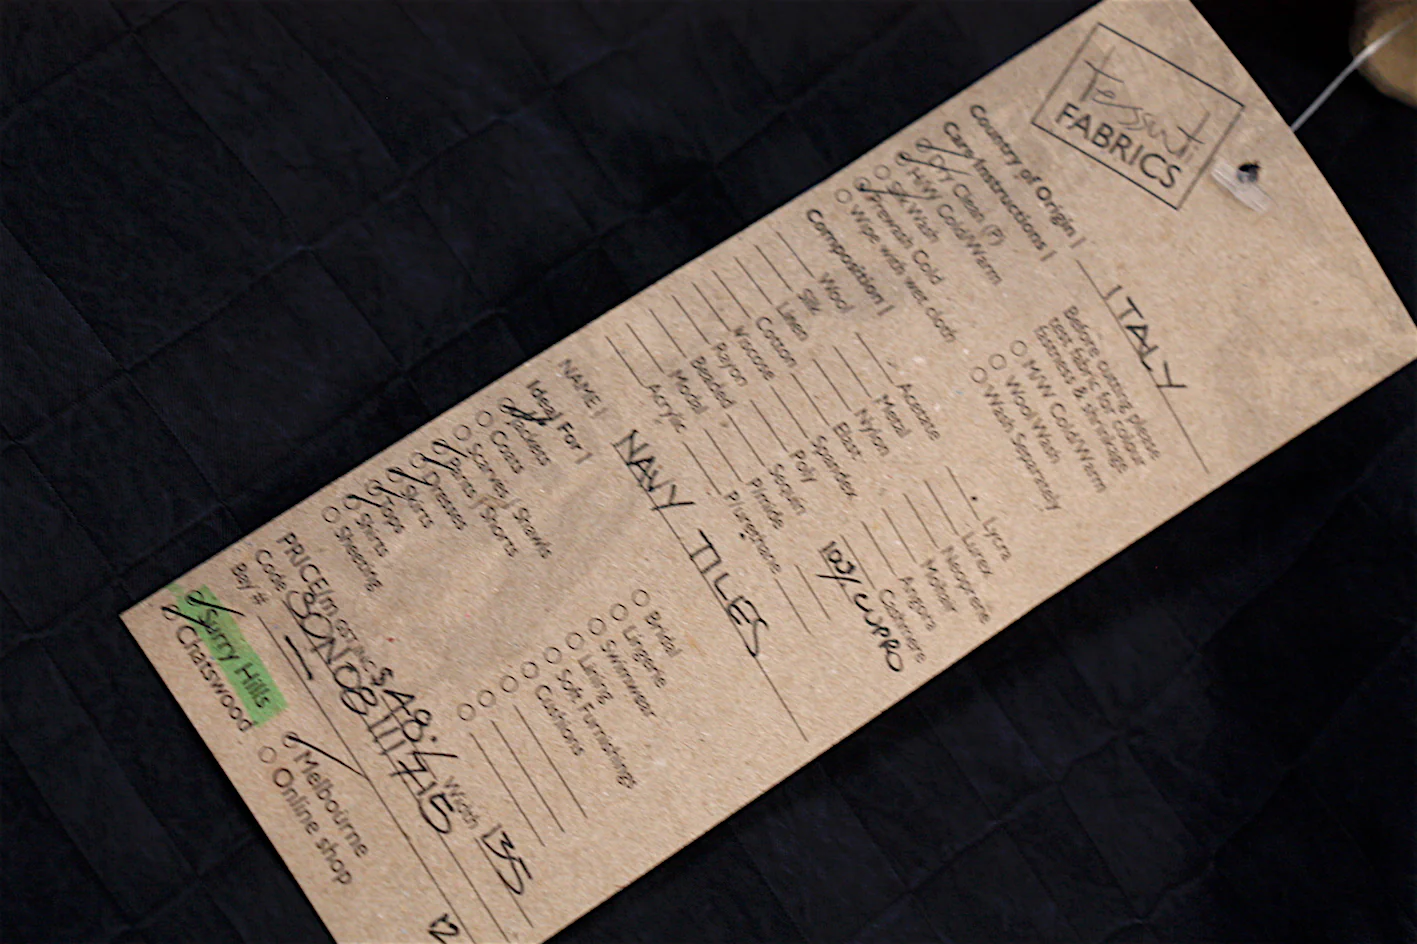 Tessuti
FABRICS
Country of Origin | ITALY
Care Instructions |
Dry Clean (P)
H/W Cold/Warm
Silk Wash
Prewash Cold
Wipe with wet cloth
Before cutting please
test fabric for colour
fastness & shrinkage
M/W Cold/Warm
Wool Wash
Wash Separately
Composition |
Wool
Silk
Linen
Cotton
Viscose
Rayon
Beaded
Modal
Acrylic
Acetate
Metal
Nylon
Elast.
Spandex
Poly
Sequin
Plurethane
Lycra
Lurex
Neoprene
Mohair
Angora
Cashmere
100% CUPRO
NAME | NAVY TILES
Ideal For |
Jackets
Coats
Scarves | Shawls
Pants | Shorts
Dresses
Skirts
Tops
Shirts
Sheeting
Bridal
Lingerie
Swimwear
Lining
Soft Furnishings
Cushions
PRICE/m $48.- Width 135
Code
Bay #
Surry Hills
Chatswood
Melbourne
Online shop